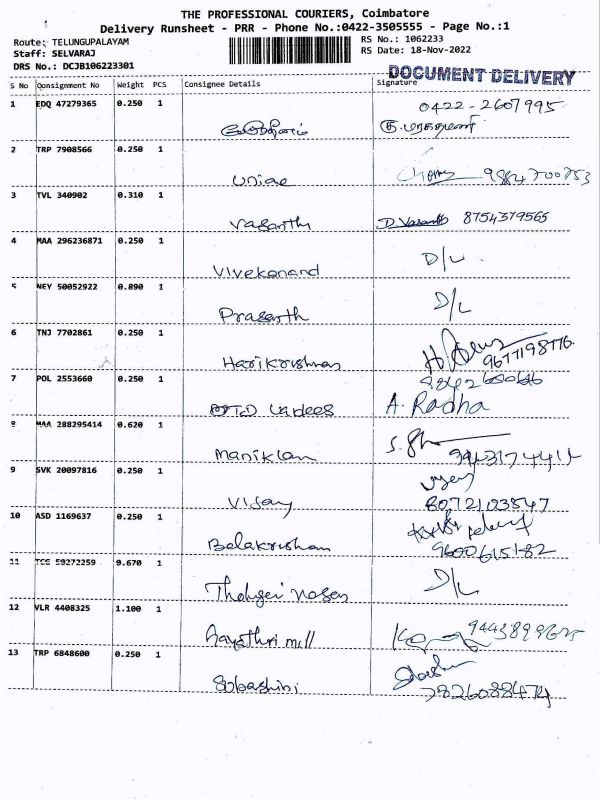 THE PROFESSIONAL COURIERS, Coimbatore
Delivery Runsheet - PRR - Phone No.:0422-3505555 - Page No.:1
Route: TELUNGUPALAYAM
Staff: SELVARAJ
DRS No.: DCJB106223301
RS No.: 1062233
RS Date: 18-Nov-2022
DOCUMENT DELIVERY
S No Consignment No Weight PCS Consignee Details Signature
1 EDQ 47279365 0.250 1 0422-2607995
2 TRP 7908566 0.250 1
3 TVL 340902 0.310 1
Vasanthy D. Vasanth 8754379565
4 MAA 296236871 0.250 1 D/L
Vivekanand
5 NEY 50052922 0.890 1 D/L
Prasanth
6 TNJ 7702861 0.250 1
Harikrishnan 9677198776
7 POL 2553660 0.250 1
A. Radha
8 MAA 288295414 0.620 1
Maniklan
9 SVK 20097816 0.250 1
Vijay 8072103547
10 ASD 1169637 0.250 1
Balakrishan 9600615182
11 TCE 59272259 9.670 1 D/L
12 VLR 4408325 1.100 1
Gayathri mill
13 TRP 6848600 0.250 1
Subashini